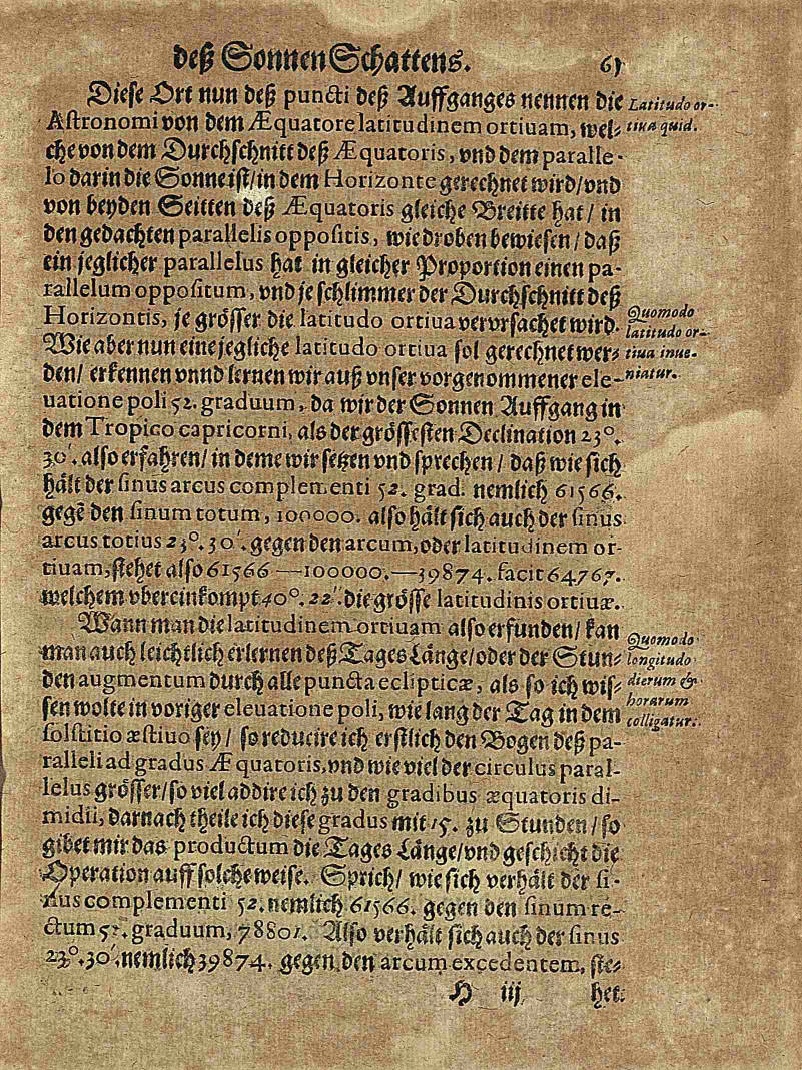 deß Sonnen Schattens. 61
Diese Ort nun deß puncti deß Auffganges nennen die
Astronomi von dem Æquatore latitudinem ortiuam, wel-
che von dem Durchschnitt deß Æquatoris, vnd dem paralle-
lo darin die Sonne ist/ in dem Horizonte gerechnet wird/ vnd
von beyden Seitten deß Æquatoris gleiche Breitte hat/ in
den gedachten parallelis oppositis, wie droben bewiesen/ daß
ein jeglicher parallelus hat in gleicher Proportion einen pa-
rallelum oppositum, vnd je schlimmer der Durchschnitt deß
Horizontis, je grösser die latitudo ortiua vervrsachet wird.
Wie aber nun eine jegliche latitudo ortiua sol gerechnet wer-
den/ erkennen vnnd lernen wir auß vnser vorgenommener ele-
uatione poli 52. graduum, da wir der Sonnen Auffgang in
dem Tropico capricorni, als der grössesten Declination 23°.
30′. also erfahren/ in deme wir setzen vnd sprechen/ daß wie sich
hält der sinus arcus complementi 52. grad. nemlich 61566.
gegē den sinum totum, 100000. also hält sich auch der sinus
arcus totius 23°. 30′. gegen den arcum, oder latitudinem or-
tiuam, stehet also 61566—100000.—39874. facit 64767.
welchem vbereinkompt 40°. 22′. die grösse latitudinis ortiuæ.
Wann man die latitudinem ortiuam also erfunden/ kan
man auch leichtlich erlernen deß Tages Länge/ oder der Stun-
den augmentum durch alle puncta eclipticæ, als so ich wis-
sen wolte in voriger eleuatione poli, wie lang der Tag in dem
solstitio æstiuo sey/ so reducire ich erstlich den Bogen deß pa-
ralleli ad gradus Æquatoris, vnd wie viel der circulus paral-
lelus grösser/ so viel addire ich zu den gradibus æquatoris di-
midii, darnach theile ich diese gradus mit 15. zu Stunden/ so
gibet mir das productum die Tages Länge/ vnd geschicht die
Operation auff solche weise. Sprich/ wie sich verhält der si-
nus complementi 52. nemlich 61566. gegen den sinum re-
ctum 52. graduum, 78801. Also verhält sich auch der sinus
23°. 30′. nemlich 39874. gegen den arcum excedentem, ste-
H iij het.
Latitudo or-
tiua quid.
Quomodo
latitudo or-
tiua inue-
niatur.
Quomodo
longitudo
dierum &
horarum
colligatur.